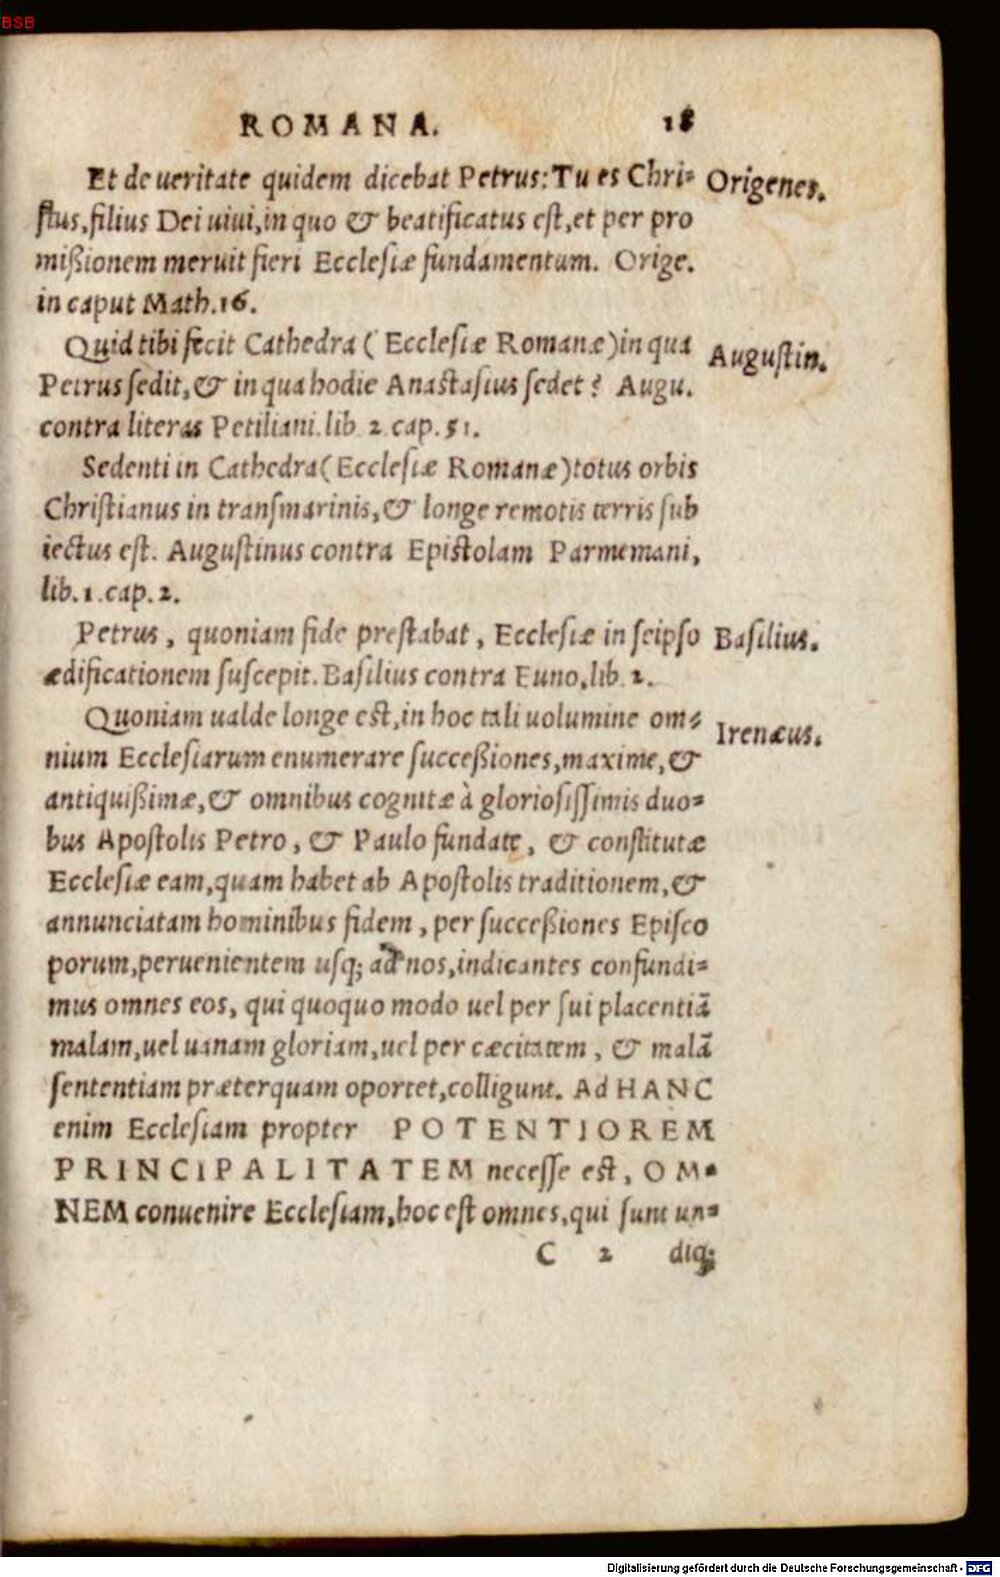 BSB
ROMANA. 18
Et de ueritate quidem dicebat Petrus: Tu es Chri- Origenes.
stus, filius Dei uiui, in quo & beatificatus est, et per pro
mißionem meruit fieri Ecclesiæ fundamentum. Orige.
in caput Math. 16.
Quid tibi fecit Cathedra (Ecclesiæ Romanæ) in qua Augustin.
Petrus sedit, & in qua hodie Anastasius sedet? Augu.
contra literas Petiliani. lib 2 cap. 51.
Sedenti in Cathedra (Ecclesiæ Romanæ) totus orbis
Christianus in transmarinis, & longe remotis terris sub
iectus est. Augustinus contra Epistolam Parmemani,
lib. 1. cap. 2.
Petrus, quoniam fide prestabat, Ecclesiæ in seipso Basilius.
ædificationem suscepit. Basilius contra Euno, lib. 2.
Quoniam ualde longe est, in hoc tali uolumine om- Irenæus.
nium Ecclesiarum enumerare succeßiones, maxime, &
antiquißimæ, & omnibus cognitæ à gloriosissimis duo-
bus Apostolis Petro, & Paulo fundate, & constitutæ
Ecclesiæ eam, quam habet ab Apostolis traditionem, &
annunciatam hominibus fidem, per succeßiones Episco
porum, peruenientem usq; ad nos, indicantes confundi-
mus omnes eos, qui quoquo modo uel per sui placentiã
malam, uel uanam gloriam, uel per cæcitatem, & malã
sententiam præterquam oportet, colligunt. Ad HANC
enim Ecclesiam propter POTENTIOREM
PRINCIPALITATEM necesse est, OM-
NEM conuenire Ecclesiam, hoc est omnes, qui sunt un-
C 2 diq;
Digitalisierung gefördert durch die Deutsche Forschungsgemeinschaft - DFG